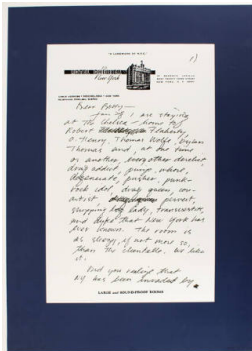 A LANDMARK OF N.Y.C.
HOTEL CHELSEA
New York
1)
Dear Betty—
Jon & I are staying
at The Chelsea - home to
Robert Flaherty,
O. Henry, Thomas Wolfe, Dylan
Thomas and, at one time
or another, every other derelict,
drug addict, pimp, whore,
degenerate, pusher, punk-
rock idol, drag queen, con-
artist, pervert,
shopping bag lady, transvestite,
and that New York has
ever known. The room is
as sleazy, if not more so,
than the clientele. We love
it.
Did you realize that
NY has been invaded by
LARGE and SOUND-PROOF ROOMS